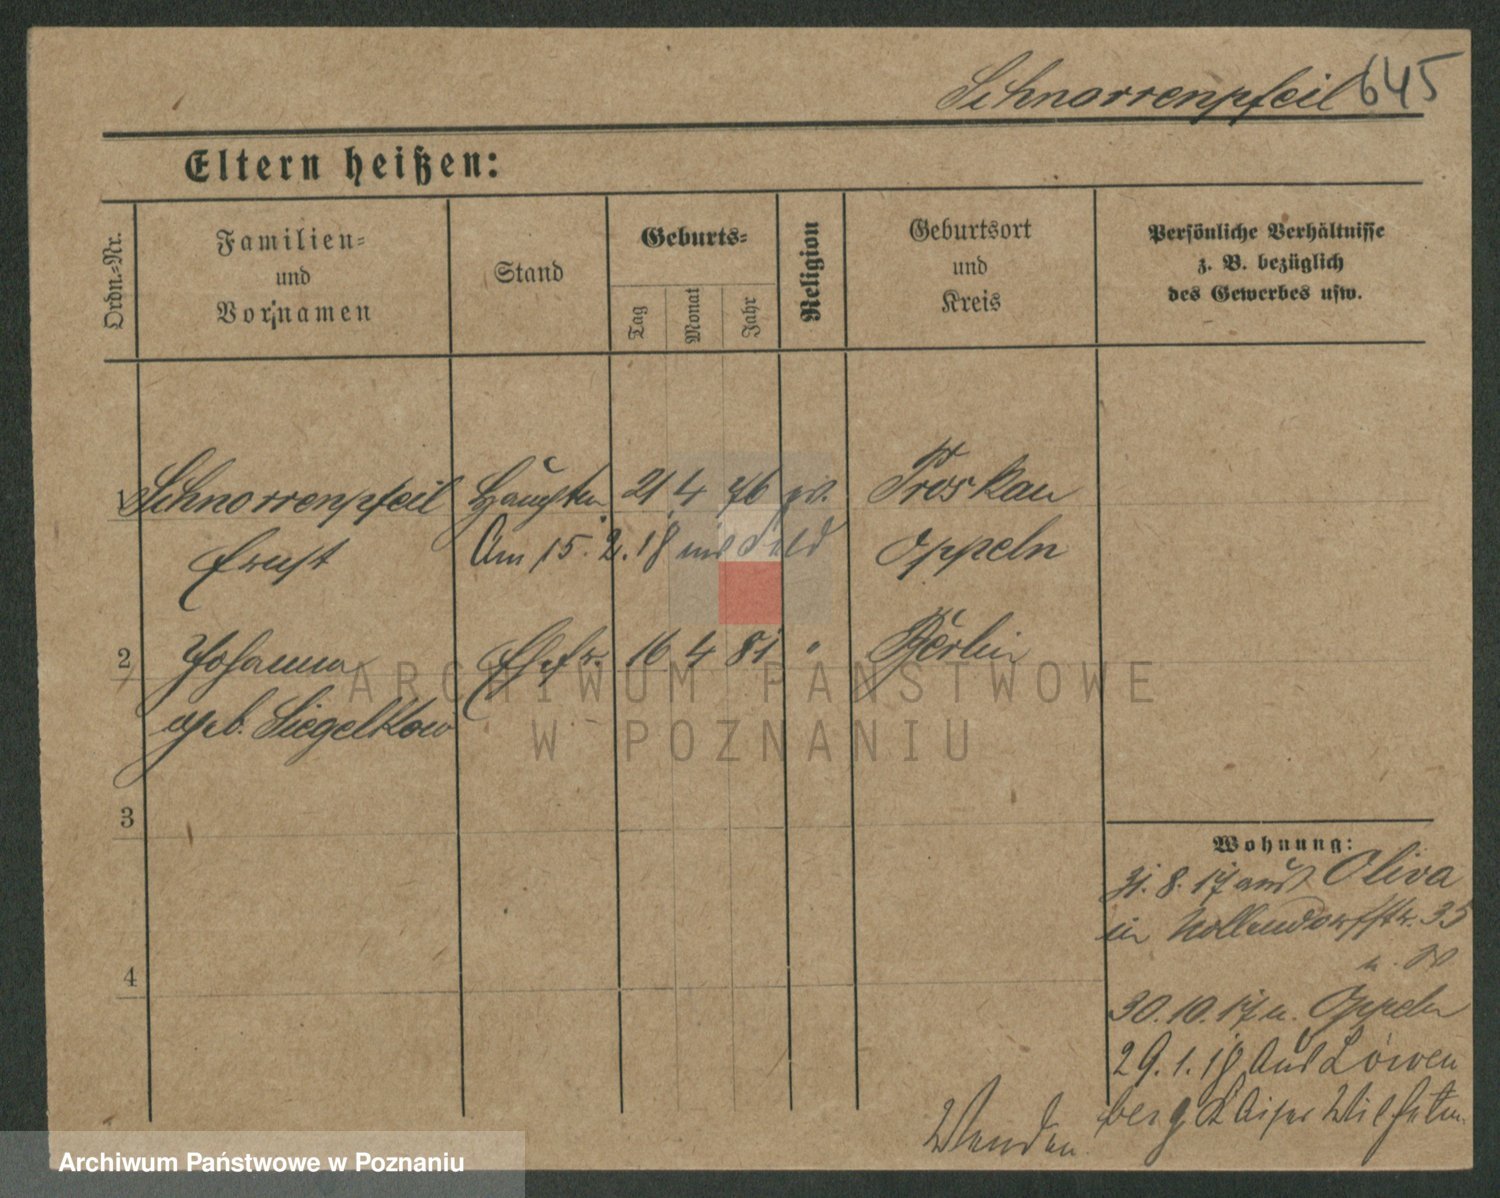 Schnorrenpfeil 645
Eltern heißen:
Ordn.=Nr.
Familien=
und
Vornamen
Stand
Geburts=
Tag
Monat
Jahr
Religion
Geburtsort
und
Kreis
Persönliche Verhältnisse
z. B. bezüglich
des Gewerbes usw.
Schnorrenpfeil Hauptm. 21 4 76 ev. Proskau
Ernst Am 15.2.18 ins Feld Oppeln
2 Johanna Ehefr. 16 4 81 " Berlin
geb. Siegelkow
3
Wohnung:
31.8.17 aus Oliva
in Nollendorfstr. 35
4
30.10.17 n. Oppeln
29.1.18 aus Löwen
berg Kaiser Wilhelm
Wenden
ARCHIWUM PAŃSTWOWE
W POZNANIU
Archiwum Państwowe w Poznaniu